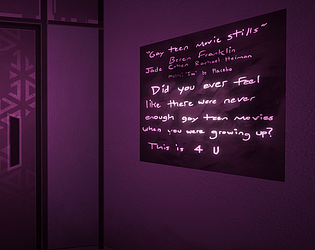 "Gay teen movie stills"
Beren Franklin
Jade Cohen Raphael Heiman
to Placebo
Did you ever feel
like there were never
enough gay teen movies
when you were growing up?
This is 4 U